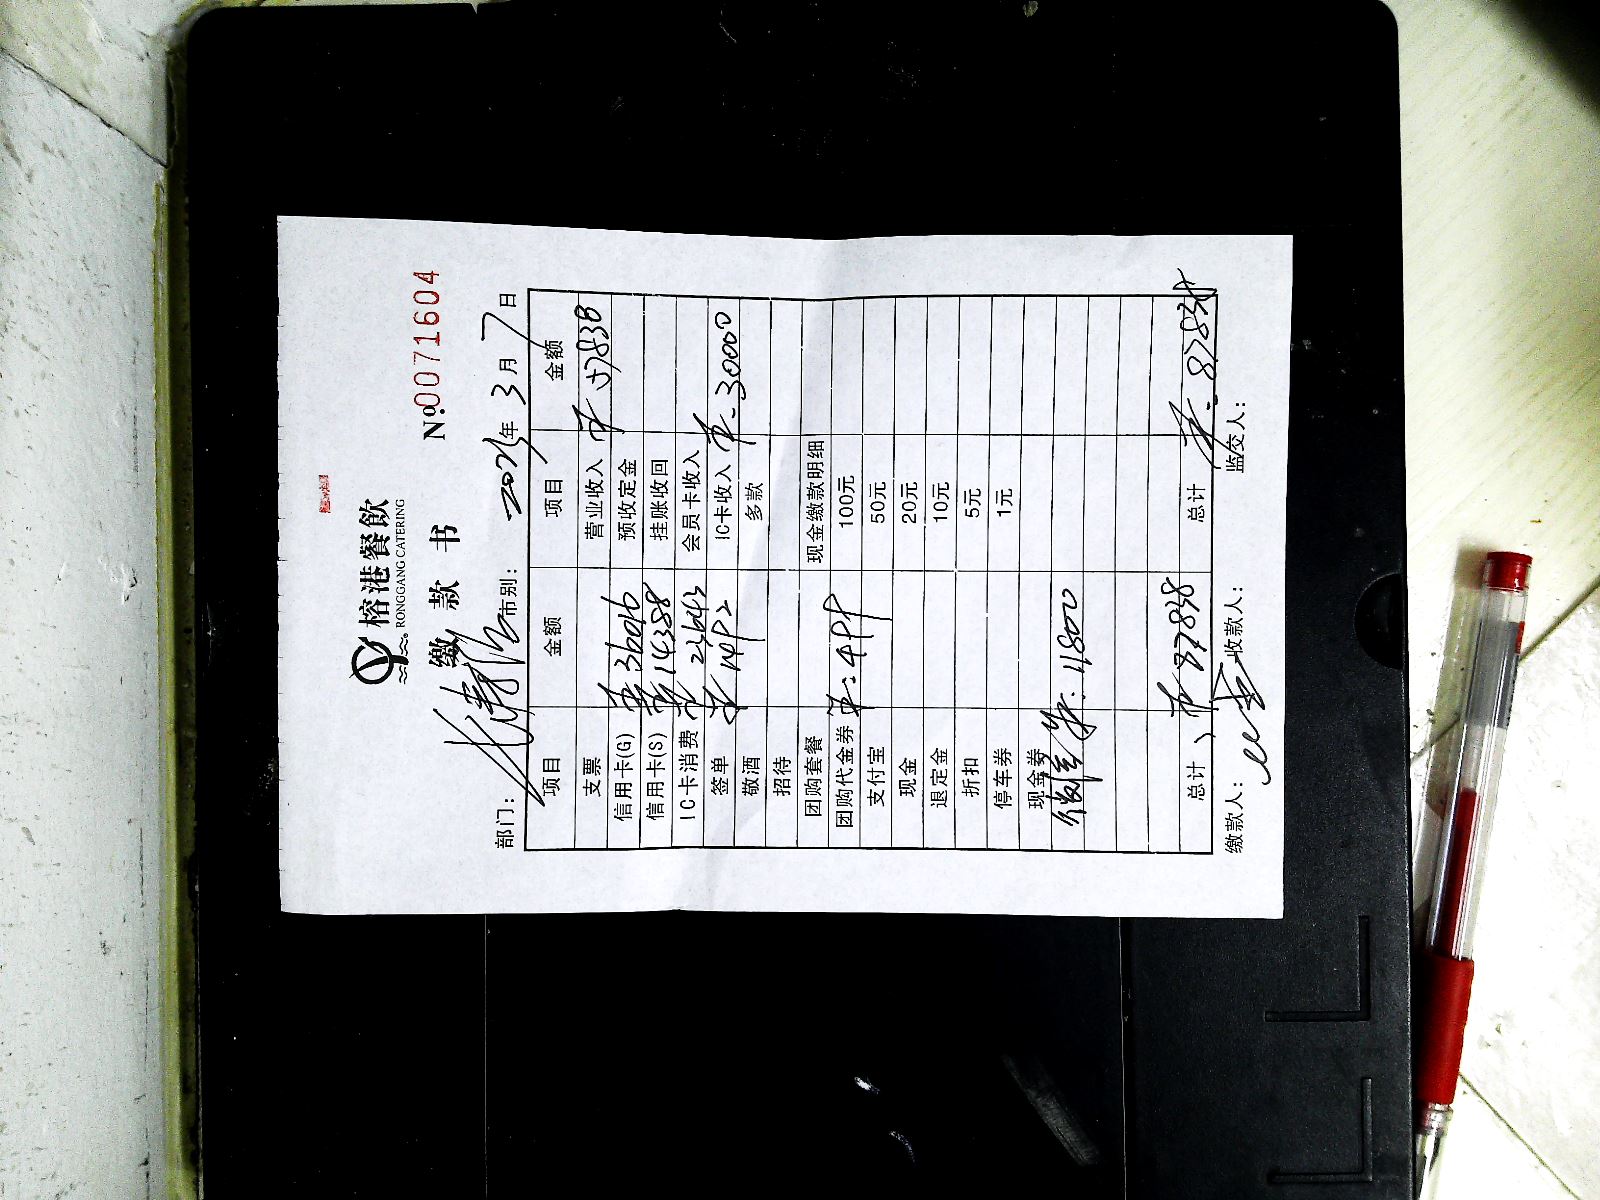 榕港餐飲
RONGGANG CATERING
缴 款 书
№0071604
部门： 市别： 年 3 月 7 日
项目 金额 项目 金额
支票 营业收入 57838
信用卡(G) 36016 预收定金
信用卡(S) 14388 挂账收回
IC卡消费 23643 会员卡收入
签单 1492 IC卡收入 30000
敬酒 多款
招待
团购套餐 现金缴款明细
团购代金券 499 100元
支付宝 50元
现金 20元
退定金 10元
折扣 5元
停车券 1元
现金券
11800
总计 87838 总计 87838
缴款人： 收款人： 监交人：